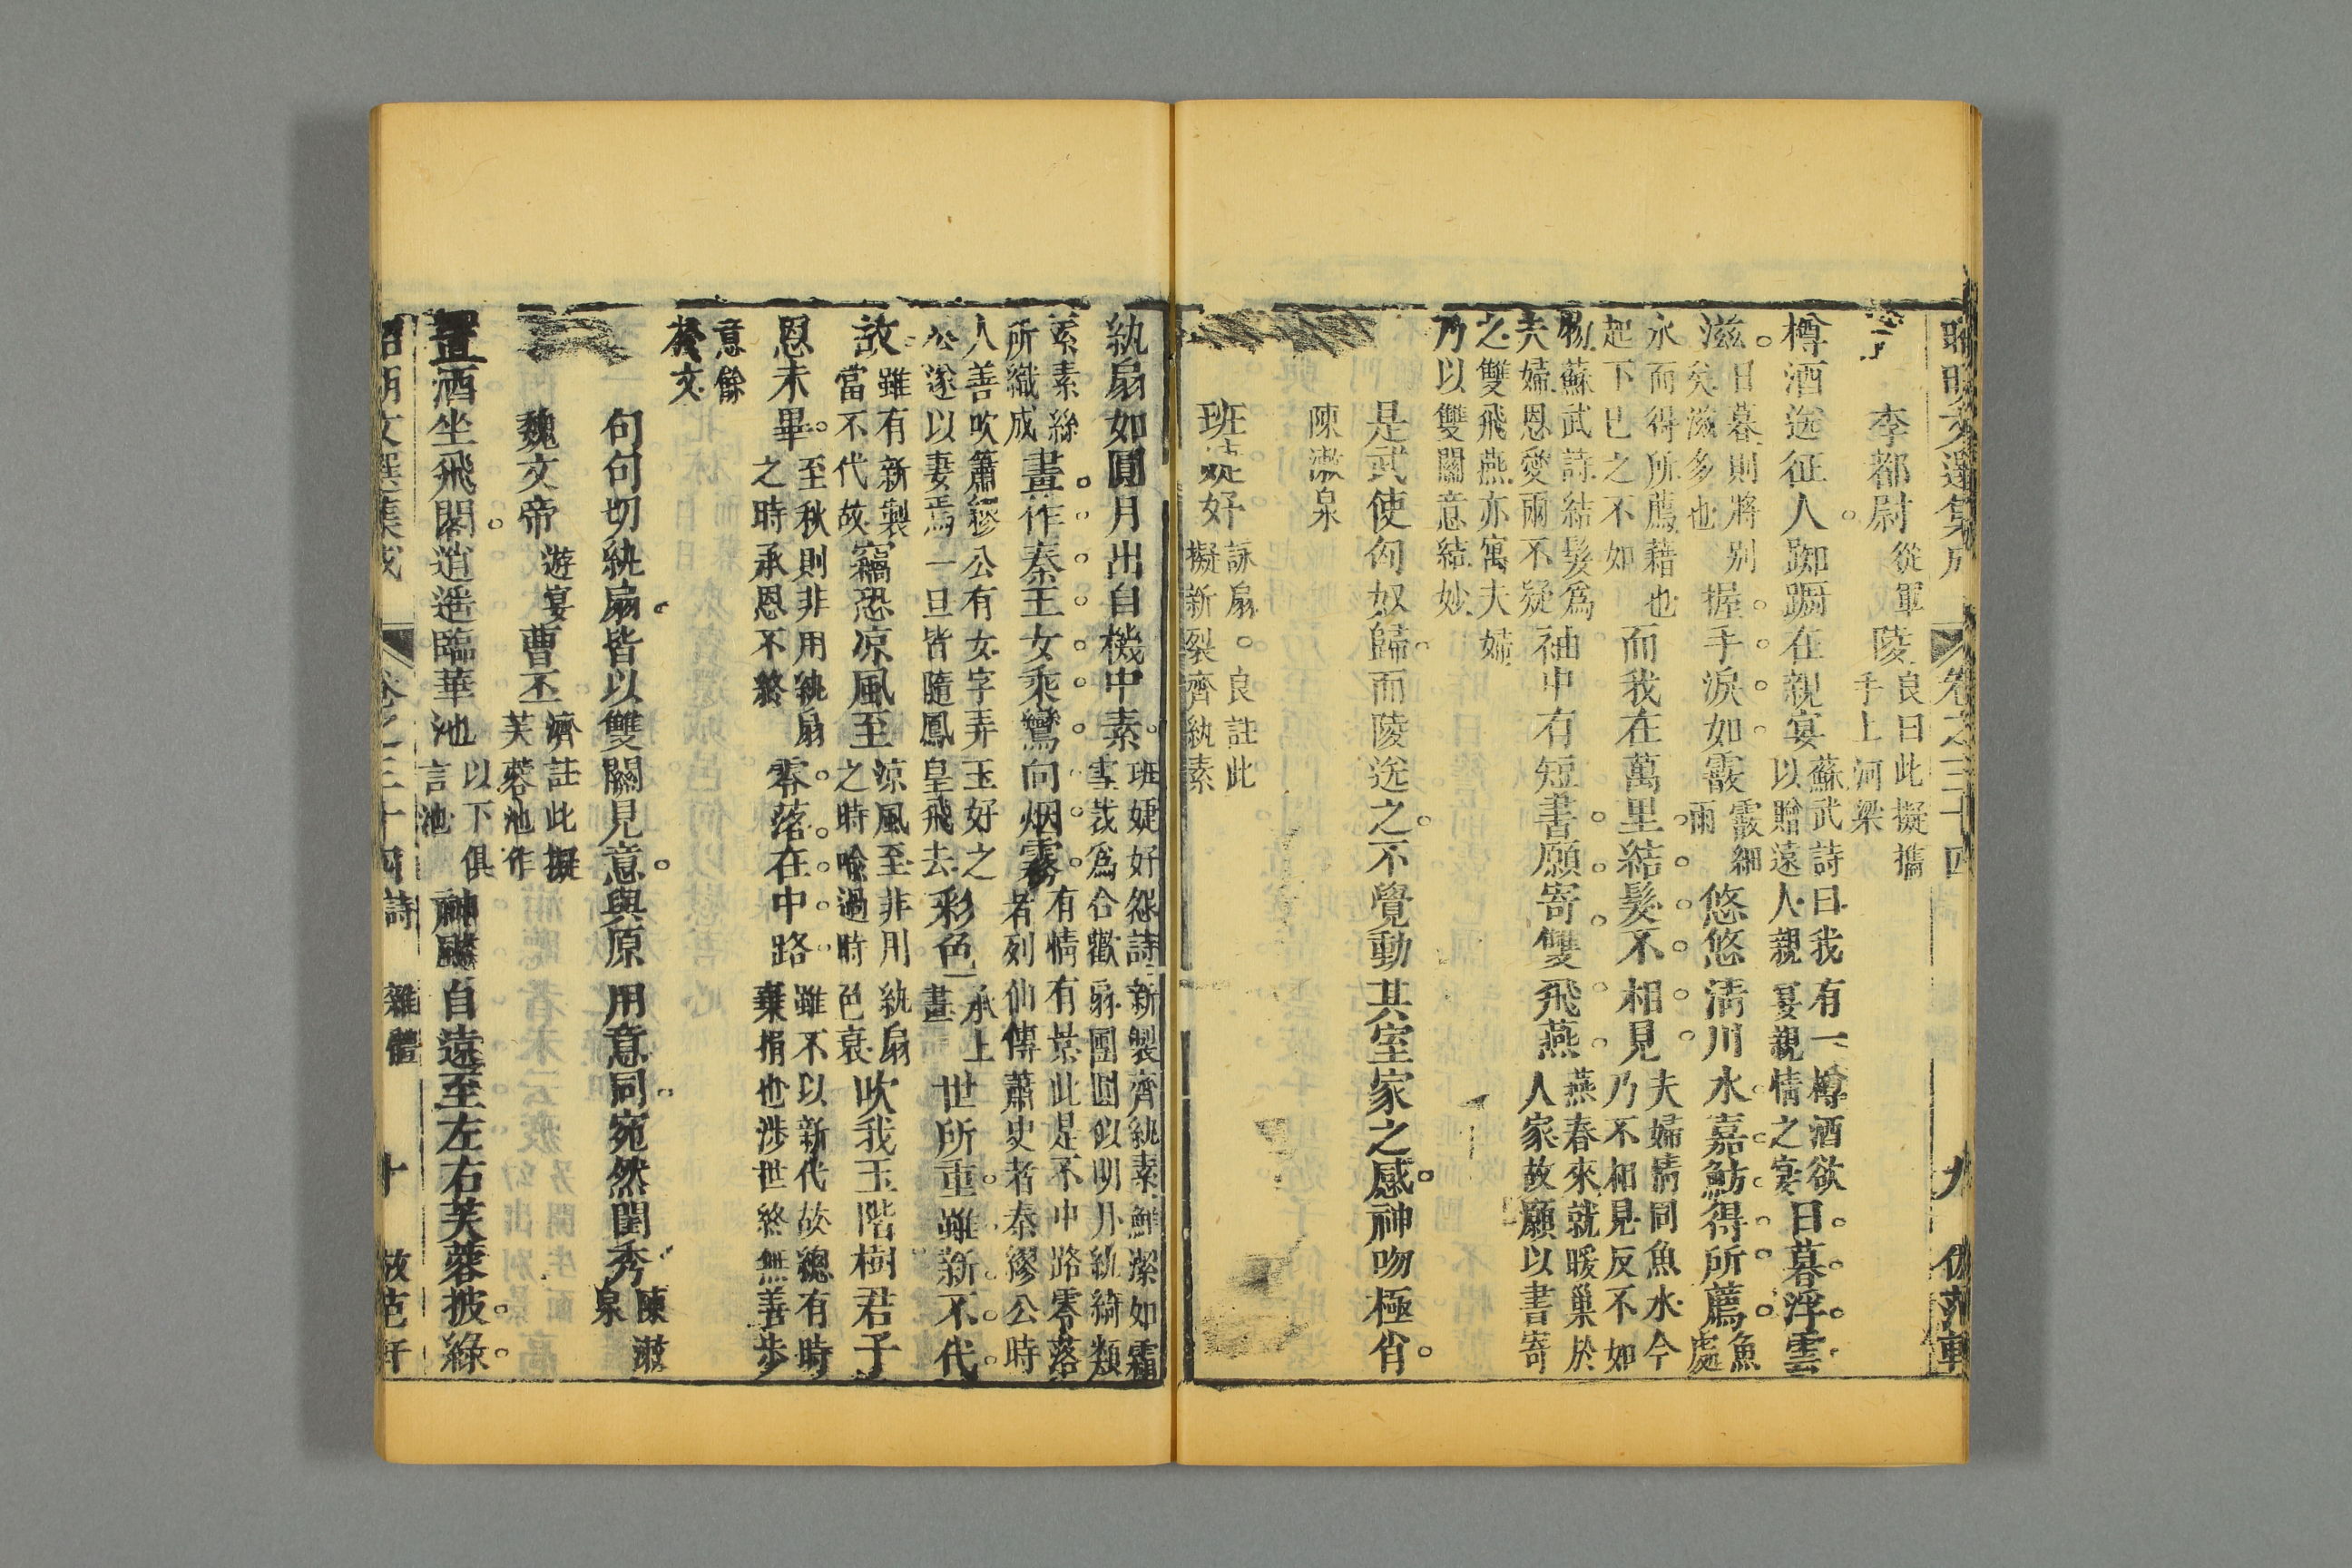 昭明文選集成 卷之三十四 九 倣范軒
李都尉 從軍 陵 良曰此擬攜手上河梁
樽酒送征人踟蹰在親宴 蘇武詩曰我有一樽酒欲以贈遠人親宴親情之宴 日暮浮雲
滋 日暮則將別矣滋滋多也 握手淚如霰 霰細雨 悠悠清川水嘉魴得所薦 魚處
水而得所薦藉也起下已之不如 而我在萬里結髮不相見 夫婦情同魚水今乃不相見反不如
物蘇武詩結髮爲夫婦恩愛兩不疑 袖中有短書願寄雙飛燕 燕春來就暖巢於人家故願以書寄
之雙飛燕亦寓夫婦乃以雙關意結妙
是武使匈奴歸而陵送之不覺動其室家之感神吻極肖
陳漱泉
班婕妤 詠扇 良註此擬新裂齊紈素
紈扇如圓月出自機中素 班婕妤怨詩新製齊紈素鮮潔如霜雪裁爲合歡扇團圓似明月紈綺類
素素絲所織成 畫作秦王女乘鸞向烟霧 有情有景此是不中路零落者列仙傳蕭史者秦繆公時
人善吹簫繆公有女字弄玉好之公遂以妻焉一旦皆隨鳳皇飛去 彩色 承上畫 世所重雖新不代
故 雖有新製當不代故 竊恐凉風至 凉風至非用之時喻過時 紈扇色衰 吹我玉階樹君子
恩未畢 至秋則非用紈扇之時承恩不終 零落在中路 雖不以新代故總有時棄捐也涉世終無善步
意餘於文
句句切紈扇皆以雙關見意與原 用意同宛然閨秀 陳漱泉
魏文帝 遊宴 曹丕 濟註此擬芙蓉池作
置酒坐飛閣逍遥臨華池 以下俱言池 神飇自遠至左右芙蓉披綠
昭明文選集成 卷之三十四詩 雜體 十 倣范軒